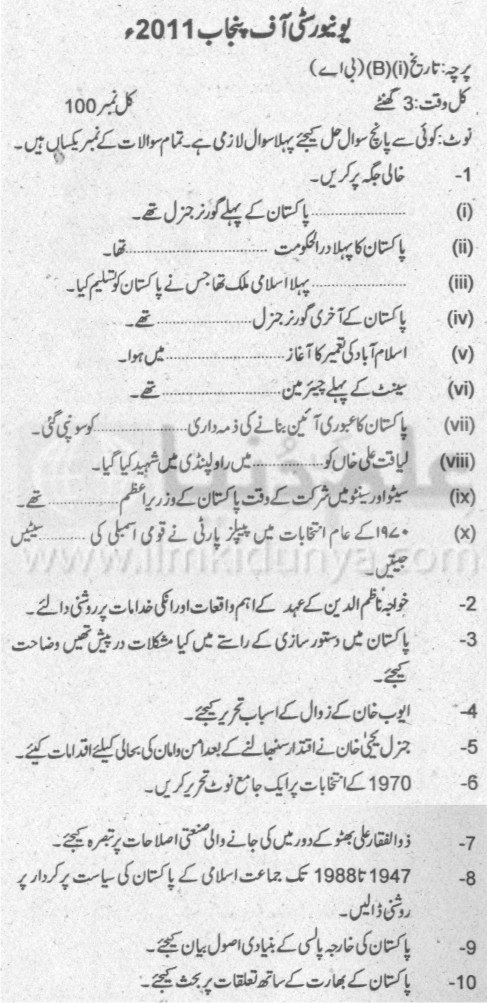 یونیورسٹی آف پنجاب 2011ء
پرچہ: تاریخ (i)(B)(بی اے)
کل وقت: 3 گھنٹے کل نمبر 100
نوٹ: کوئی سے پانچ سوال حل کیجئے پہلا سوال لازمی ہے۔ تمام سوالات کے نمبر یکساں ہیں۔
-1 خالی جگہ پر کریں۔
(i) ........................ پاکستان کے پہلے گورنر جنرل تھے۔
(ii) پاکستان کا پہلا دارالحکومت ........................ تھا۔
(iii) ........................ پہلا اسلامی ملک تھا جس نے پاکستان کو تسلیم کیا۔
(iv) پاکستان کے آخری گورنر جنرل ........................ تھے۔
(v) اسلام آباد کی تعمیر کا آغاز ........................ میں ہوا۔
(vi) سینٹ کے پہلے چیئرمین ........................ تھے۔
(vii) پاکستان کا عبوری آئین بنانے کی ذمہ داری ........................ کو سونپی گئی۔
(viii) لیاقت علی خاں کو ............ میں راولپنڈی میں شہید کیا گیا۔
(ix) سیٹو اور سینٹو میں شرکت کے وقت پاکستان کے وزیر اعظم ............ تھے۔
(x) ۱۹۷۰ کے عام انتخابات میں پیپلز پارٹی نے قومی اسمبلی کی ............ سیٹیں
جیتیں۔
-2 خواجہ ناظم الدین کے عہد کے اہم واقعات اور انکی خدامات پر روشنی ڈالئے۔
-3 پاکستان میں دستور سازی کے راستے میں کیا مشکلات درپیش تھیں وضاحت
کیجئے۔
-4 ایوب خان کے زوال کے اسباب تحریر کیجئے۔
-5 جنرل یحییٰ خان نے اقتدار سنبھالنے کے بعد امن و امان کی بحالی کیلئے اقدامات کیئے۔
-6 1970 کے انتخابات پر ایک جامع نوٹ تحریر کریں۔
-7 ذوالفقار علی بھٹو کے دور میں کی جانے والی صنعتی اصلاحات پر تبصرہ کیجئے۔
-8 1947 تا 1988 تک جماعت اسلامی کے پاکستان کی سیاست پر کردار پر
روشنی ڈالیں۔
-9 پاکستان کی خارجہ پالسی کے بنیادی اصول بیان کیجئے۔
-10 پاکستان کے بھارت کے ساتھ تعلقات پر بحث کیجئے۔
علم کی دُنیا
www.ilmkidunya.com